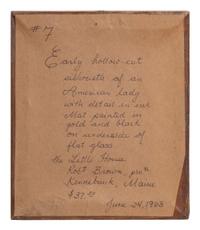 #7
Early hollow-cut
silhouette of an
American lady
with detail in ink
Mat painted in
gold and black
on underside of
flat glass.
The Little House
Robt Brown, 
Kennebunk, Maine
$37.50
June 24, 1963